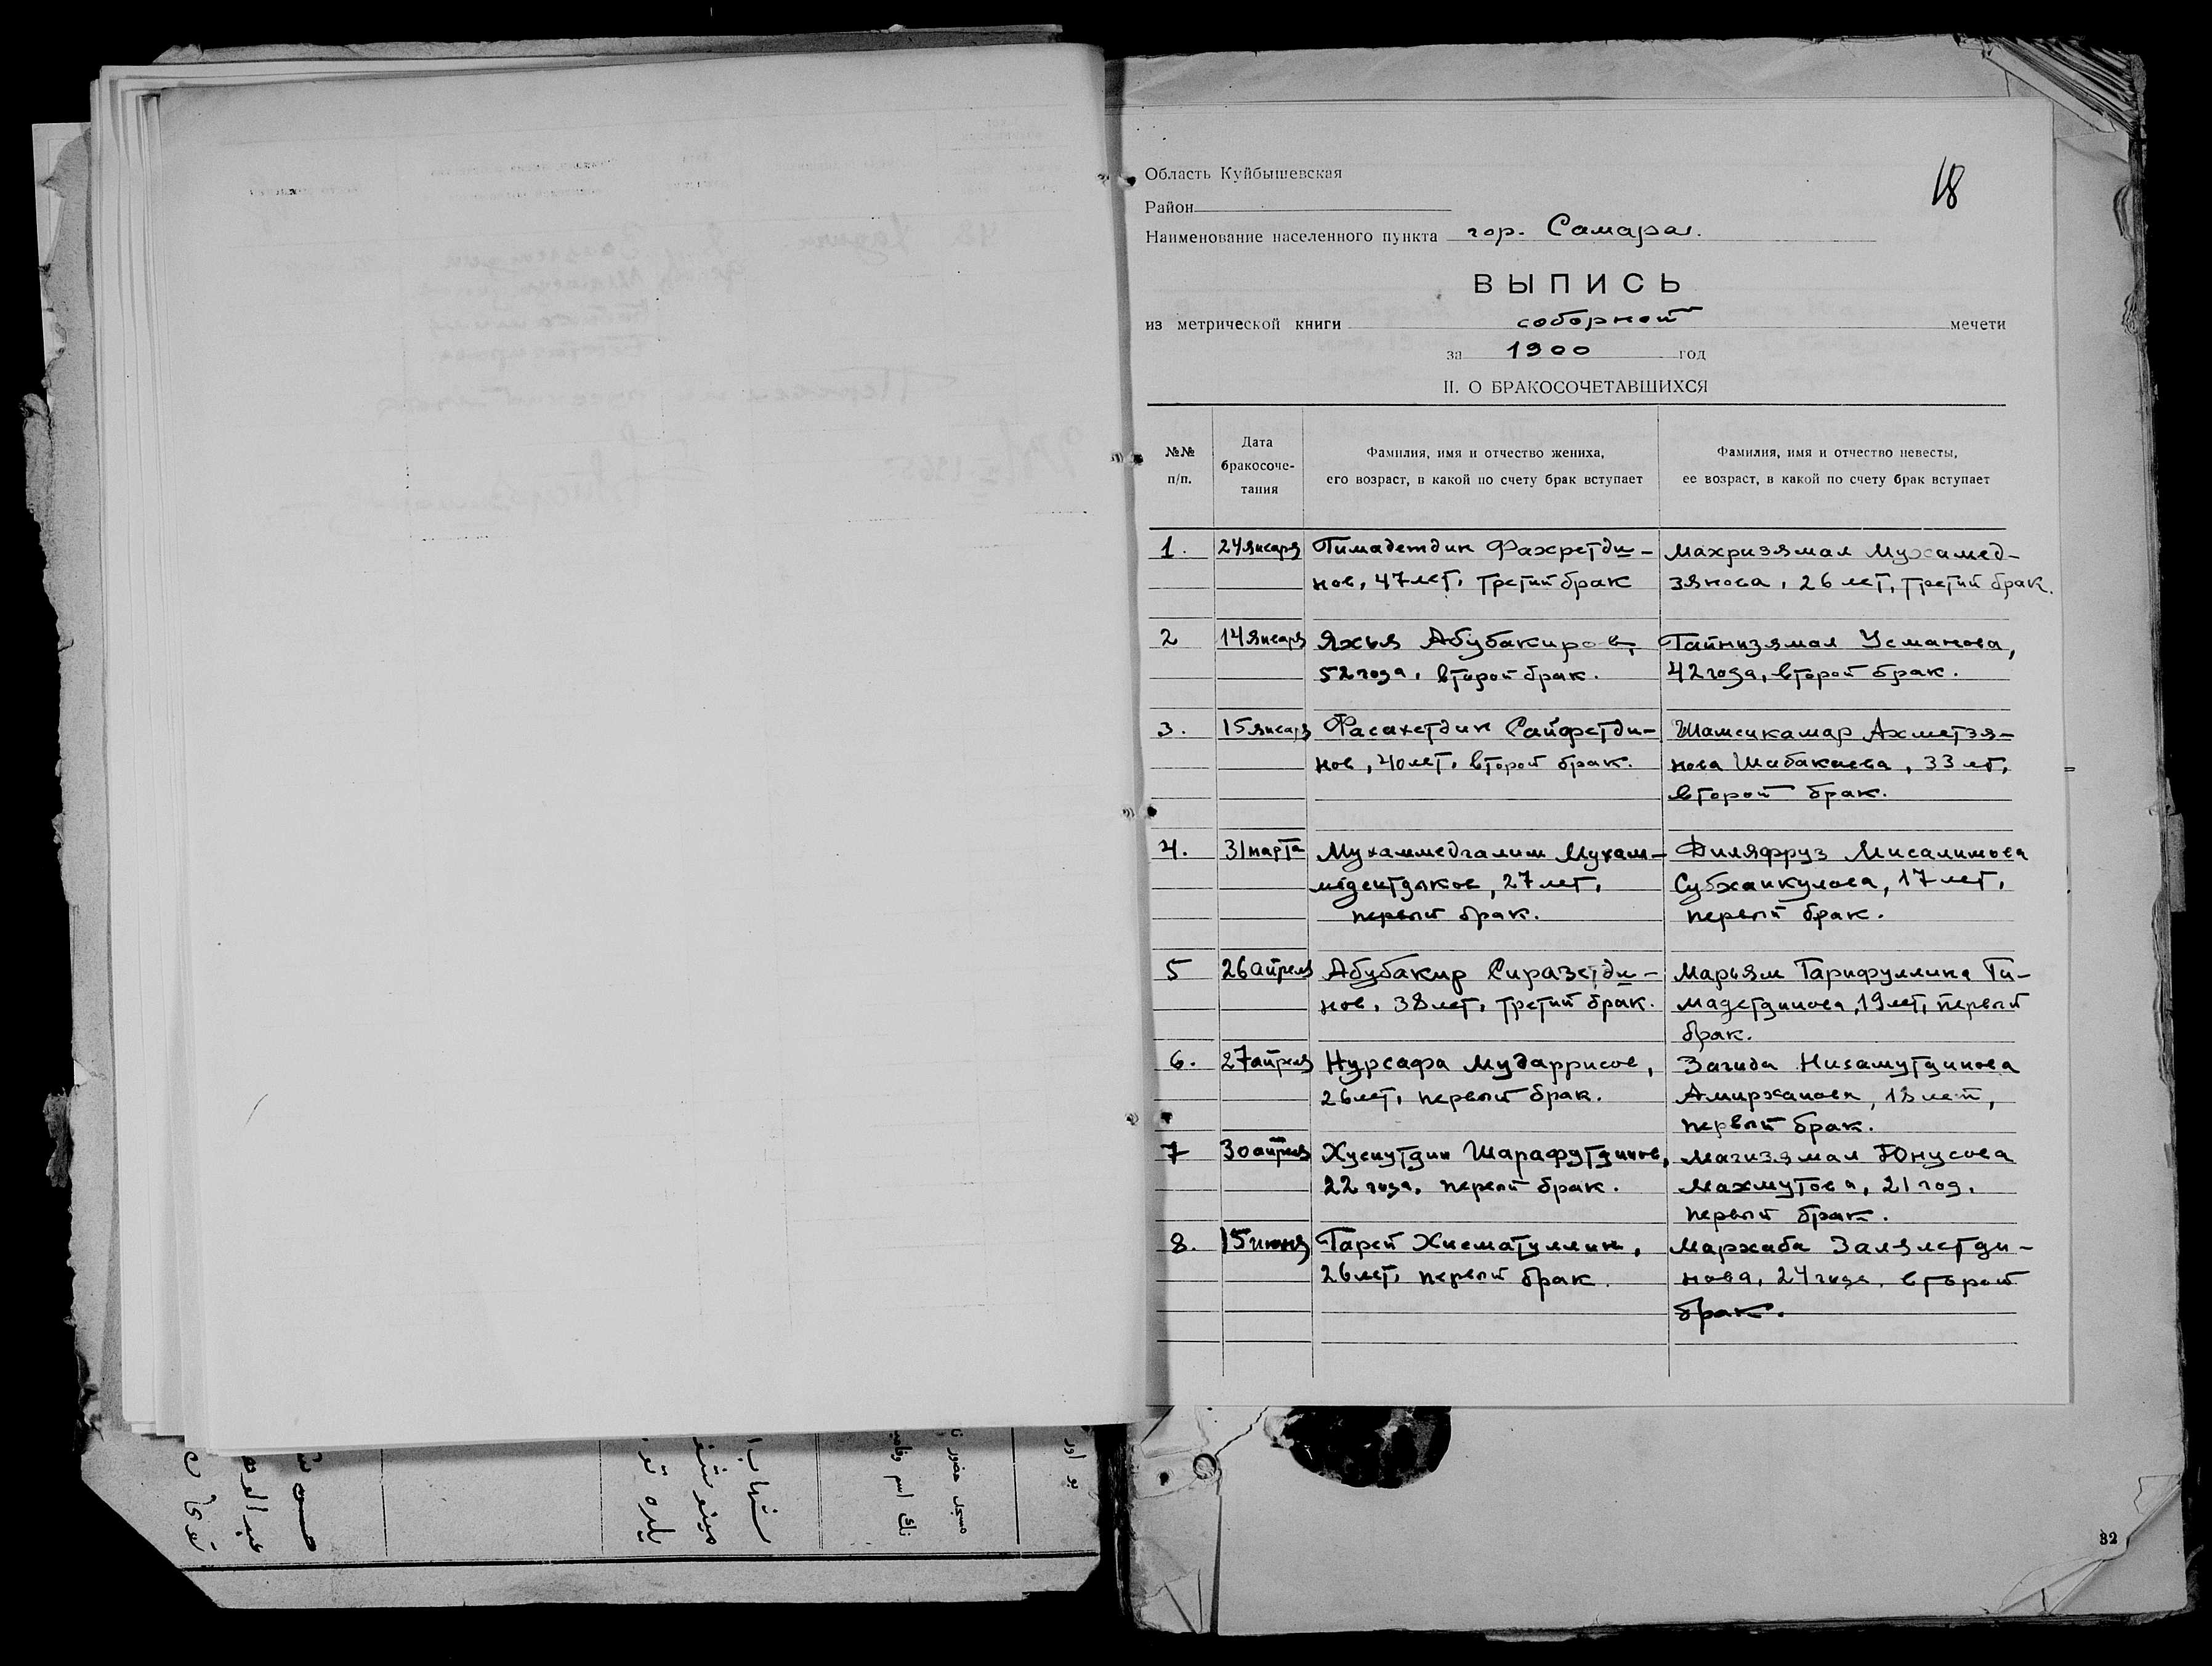 18
Область Куйбышевская
Район
Наименование населенного пункта гор. Самара.
ВЫПИСЬ
из метрической книги соборной мечети
за 1900 год
II. О БРАКОСОЧЕТАВШИХСЯ
№№ п/п.
Дата бракосоче-
тания
Фамилия, имя и отчество жениха,
его возраст, в какой по счету брак вступает
Фамилия, имя и отчество невесты,
ее возраст, в какой по счету брак вступает
1. 24 января Гимадетдин Фахретди- Махризямал Мухамед-
нов, 47 лет, третий брак зянова, 26 лет, третий брак.
2 14 января Яхья Абубакиров, Гайнизямал Усманова,
52 года, второй брак. 42 года, второй брак.
3. 15 января Фасахетдин Сайфетди- Шамсикамар Ахметзя-
нов, 40 лет, второй брак. нова Шабакаева, 33 лет,
второй брак.
4. 31 марта Мухаммедгалим Мухам- Диляфруз Мисалимова
Субханкулова, 17 лет,
27 лет,
первый брак. первый брак.
5 26 апреля Абубакир Сиразетди- Марьям Гарифуллина Ги-
нов, 38 лет, третий брак. мадетдинова, 19 лет, первый
брак.
6. 27 апреля Нурсафа Мударрисов, Загида Низамутдинова
26 лет, первый брак. Амирханова, 18 лет,
первый брак.
7 30 апреля Хуснутдин Шарафутдинов, Магизямал Юнусова
22 года, первый брак. Махмутова, 21 год,
первый брак.
8. 15 июня Гарей Хисматуллин, Мархаба Залялетди-
26 лет, первый брак. нова, 24 года, второй
брак.
32